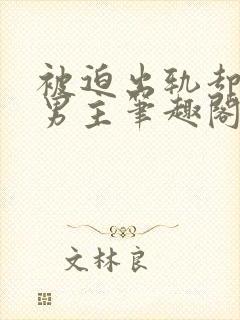 被迫出轨却
男主笔趣阁
文林良